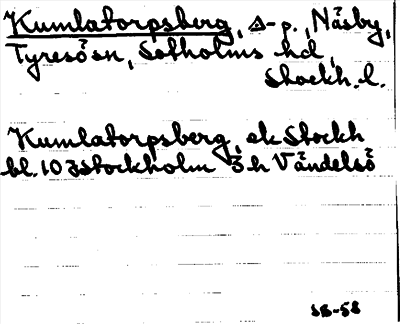 Kumlatorpsberg, Δ-p., Näsby,
Tyresö sn, Sotholms hd,
Stockh. l.
Kumlatorpsberg, ek Stockh
bl. 10 I Stockholm 3 h Vändelsö
SB-58